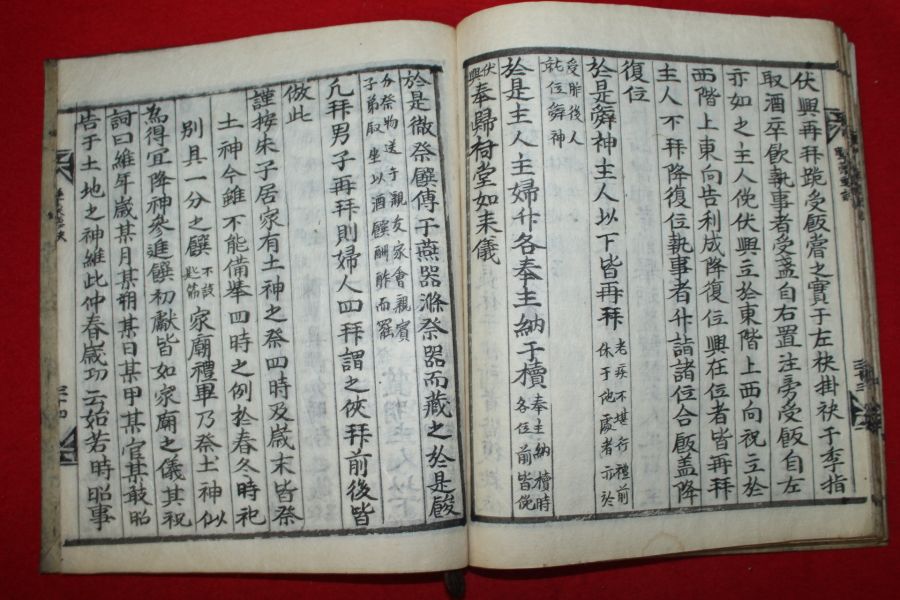 伏興再拜跪受飯嘗之實于左袂掛袂于季指
取酒卒飮執事者受盞自右置注旁受飯自左
亦如之主人俛伏興立於東階上西向祝立於
西階上東向告利成降復位興在位者皆再拜
主人不拜降復位執事者升詣諸位合飯盖降
復位
於是辭神主人以下皆再拜 老疾不堪行禮前
休于他處者亦於
受胙後人
就位辭神
於是主人主婦升各奉主納于櫝 奉主納櫝時
各位前皆俛
伏
興 奉歸祠堂如来儀
於是徹祭饌傳于燕器滌祭器而藏之於是餕
分祭物送于親友家會親賓
子弟取坐以酒饌酬酢而罷
凡拜男子再拜則婦人四拜謂之俠拜前後皆
倣此
謹按朱子居家有土神之祭四時及歲末皆祭
土神今雖不能備擧四時之例於春冬時祀
別具一分之饌 不設
匙筯 家廟禮畢乃祭土神似
為得宜降神參進饌初獻皆如家廟之儀其祝
詞曰維年歲某月某朔某日某甲某官某敢昭
告于土地之神維此仲春歲功云始若時昭事